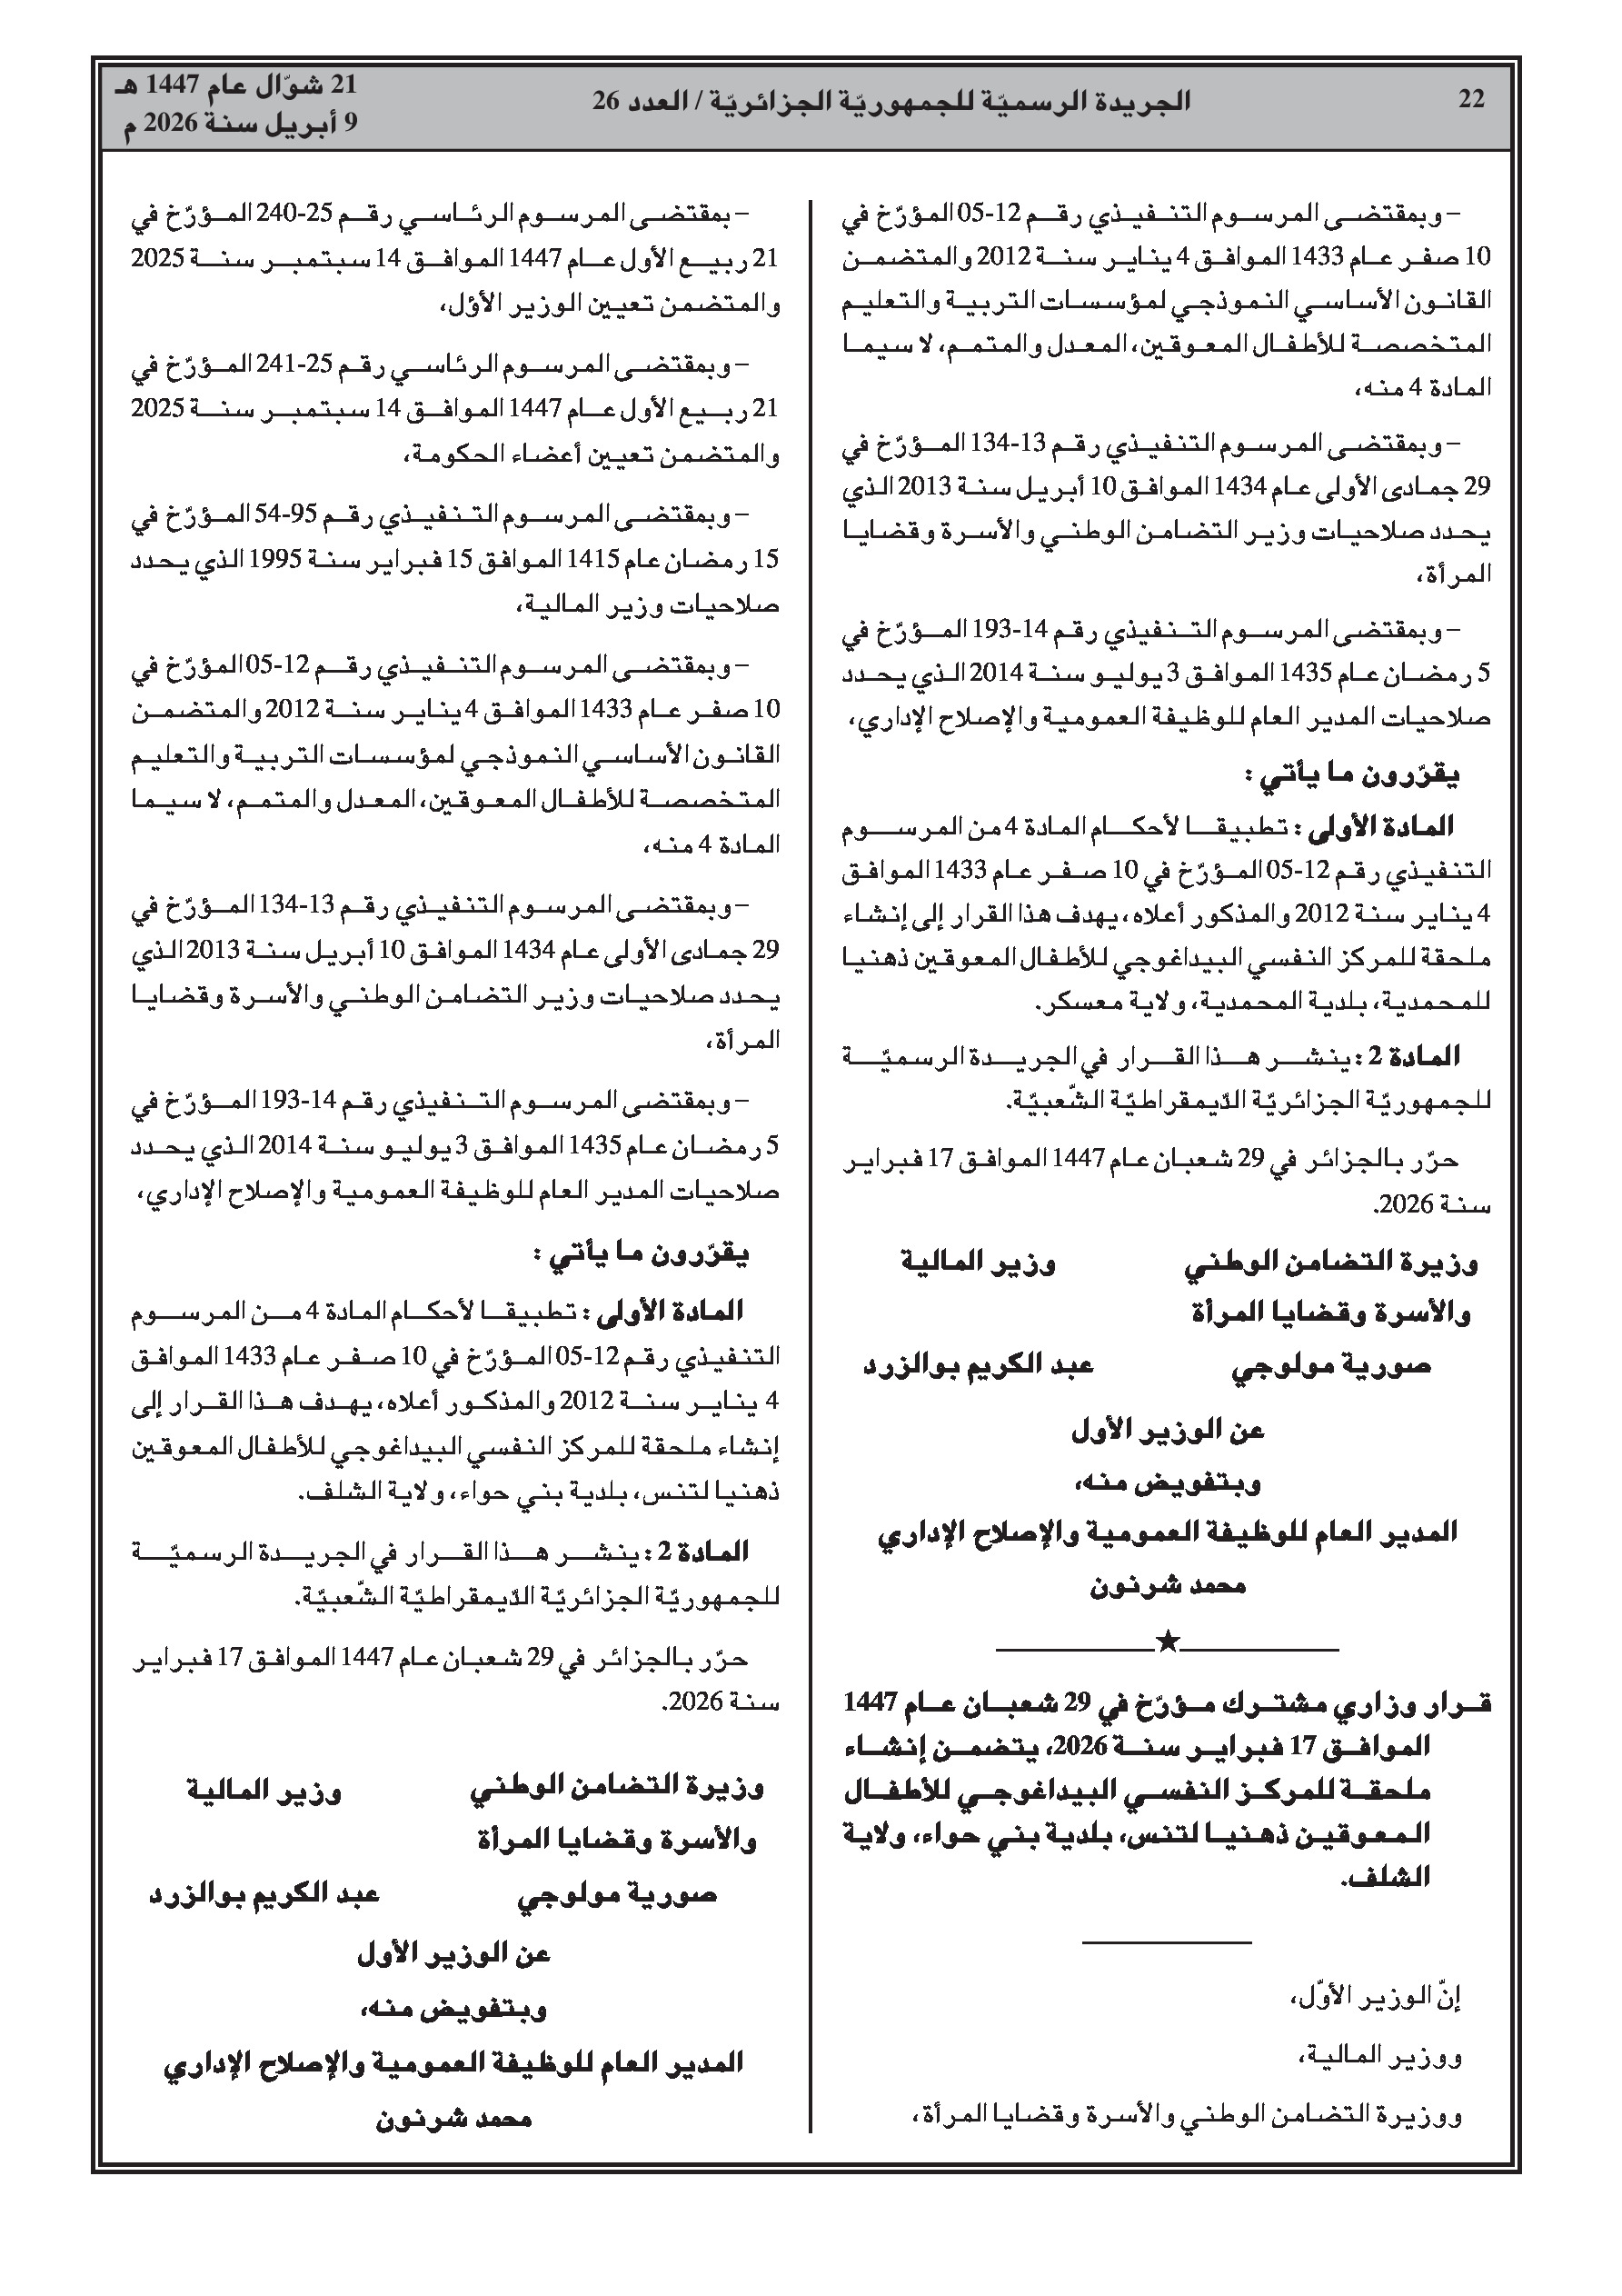 22
الجريدة الرسميّة للجمهوريّة الجزائريّة / العدد 26
21 شوّال عام 1447 هـ
9 أبريل سنة 2026 م
– وبمقتضى المرسوم التنفيذي رقم 12-05 المؤرّخ في
10 صفر عام 1433 الموافق 4 يناير سنة 2012 والمتضمن
القانون الأساسي النموذجي لمؤسسات التربية والتعليم
المتخصصة للأطفال المعوقين، المعدل والمتمم، لا سيما
المادة 4 منه،
– وبمقتضى المرسوم التنفيذي رقم 13-134 المؤرّخ في
29 جمادى الأولى عام 1434 الموافق 10 أبريل سنة 2013 الذي
يحدد صلاحيات وزير التضامن الوطني والأسرة وقضايا
المرأة،
– وبمقتضى المرسوم التنفيذي رقم 14-193 المؤرّخ في
5 رمضان عام 1435 الموافق 3 يوليو سنة 2014 الذي يحدد
صلاحيات المدير العام للوظيفة العمومية والإصلاح الإداري،
يقرّرون ما يأتي :
المادة الأولى : تطبيقا لأحكام المادة 4 من المرسوم
التنفيذي رقم 12-05 المؤرّخ في 10 صفر عام 1433 الموافق
4 يناير سنة 2012 والمذكور أعلاه، يهدف هذا القرار إلى إنشاء
ملحقة للمركز النفسي البيداغوجي للأطفال المعوقين ذهنيا
للمحمدية، بلدية المحمدية، ولاية معسكر.
المادة 2 : ينشر هذا القرار في الجريدة الرسميّة
للجمهوريّة الجزائريّة الدّيمقراطيّة الشّعبيّة.
حرّر بالجزائر في 29 شعبان عام 1447 الموافق 17 فبراير
سنة 2026.
وزيرة التضامن الوطني وزير المالية
والأسرة وقضايا المرأة
صورية مولوجي عبد الكريم بوالزرد
عن الوزير الأول
وبتفويض منه،
المدير العام للوظيفة العمومية والإصلاح الإداري
محمد شرنون
★
قرار وزاري مشترك مؤرّخ في 29 شعبان عام 1447
الموافق 17 فبراير سنة 2026، يتضمن إنشاء
ملحقة للمركز النفسي البيداغوجي للأطفال
المعوقين ذهنيا لتنس، بلدية بني حواء، ولاية
الشلف.
إنّ الوزير الأوّل،
ووزير المالية،
ووزيرة التضامن الوطني والأسرة وقضايا المرأة،
– بمقتضى المرسوم الرئاسي رقم 25-240 المؤرّخ في
21 ربيع الأول عام 1447 الموافق 14 سبتمبر سنة 2025
والمتضمن تعيين الوزير الأوّل،
– وبمقتضى المرسوم الرئاسي رقم 25-241 المؤرّخ في
21 ربيع الأول عام 1447 الموافق 14 سبتمبر سنة 2025
والمتضمن تعيين أعضاء الحكومة،
– وبمقتضى المرسوم التنفيذي رقم 95-54 المؤرّخ في
15 رمضان عام 1415 الموافق 15 فبراير سنة 1995 الذي يحدد
صلاحيات وزير المالية،
– وبمقتضى المرسوم التنفيذي رقم 12-05 المؤرّخ في
10 صفر عام 1433 الموافق 4 يناير سنة 2012 والمتضمن
القانون الأساسي النموذجي لمؤسسات التربية والتعليم
المتخصصة للأطفال المعوقين، المعدل والمتمم، لا سيما
المادة 4 منه،
– وبمقتضى المرسوم التنفيذي رقم 13-134 المؤرّخ في
29 جمادى الأولى عام 1434 الموافق 10 أبريل سنة 2013 الذي
يحدد صلاحيات وزير التضامن الوطني والأسرة وقضايا
المرأة،
– وبمقتضى المرسوم التنفيذي رقم 14-193 المؤرّخ في
5 رمضان عام 1435 الموافق 3 يوليو سنة 2014 الذي يحدد
صلاحيات المدير العام للوظيفة العمومية والإصلاح الإداري،
يقرّرون ما يأتي :
المادة الأولى : تطبيقا لأحكام المادة 4 من المرسوم
التنفيذي رقم 12-05 المؤرّخ في 10 صفر عام 1433 الموافق
4 يناير سنة 2012 والمذكور أعلاه، يهدف هذا القرار إلى
إنشاء ملحقة للمركز النفسي البيداغوجي للأطفال المعوقين
ذهنيا لتنس، بلدية بني حواء، ولاية الشلف.
المادة 2 : ينشر هذا القرار في الجريدة الرسميّة
للجمهوريّة الجزائريّة الدّيمقراطيّة الشّعبيّة.
حرّر بالجزائر في 29 شعبان عام 1447 الموافق 17 فبراير
سنة 2026.
وزيرة التضامن الوطني وزير المالية
والأسرة وقضايا المرأة
صورية مولوجي عبد الكريم بوالزرد
عن الوزير الأول
وبتفويض منه،
المدير العام للوظيفة العمومية والإصلاح الإداري
محمد شرنون